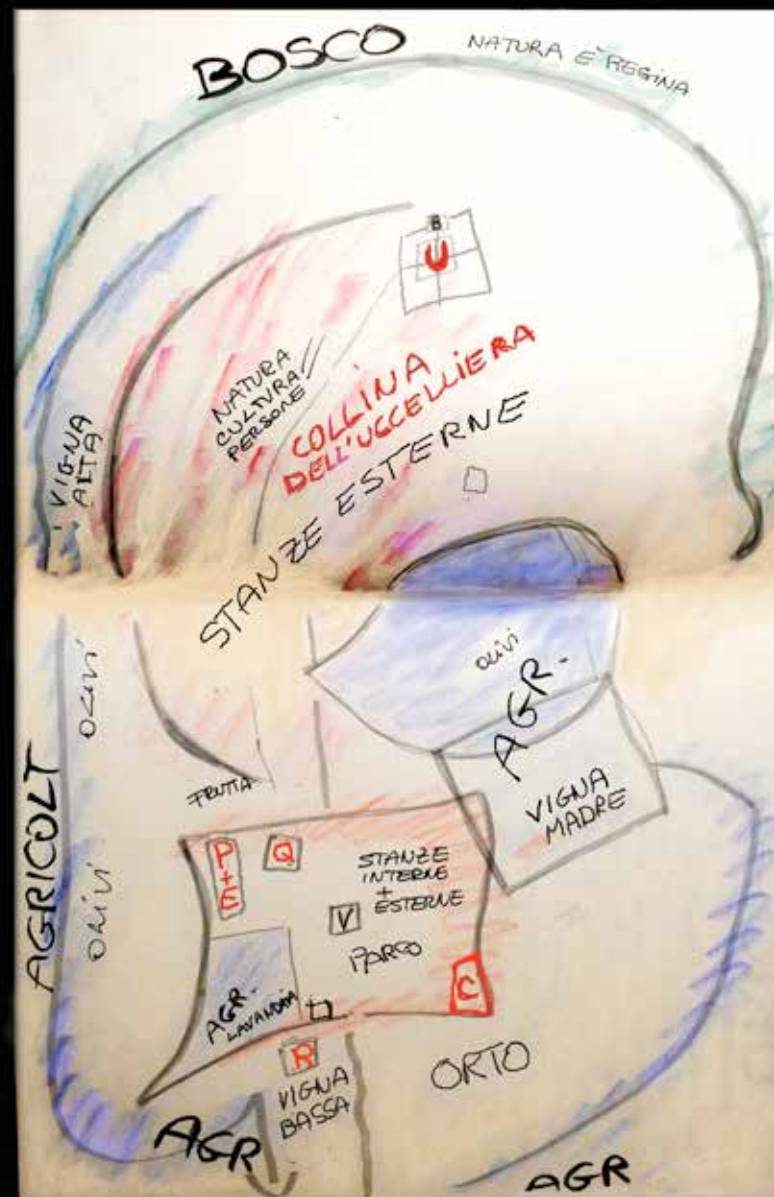 BOSCO
NATURA E' REGINA
B
U
NATURA
CULTURA
PERSONE
COLLINA
DELL'UCCELLIERA
STANZE ESTERNE
VIGNA
ALTA
OLIVI
OLIVI
AGR.
FRUTTA
VIGNA
MADRE
AGRICOLT
OLIVI
P+E
Q
STANZE
INTERNE
+
ESTERNE
V
PARCO
C
AGR.
LAVANDA
R
VIGNA
BASSA
ORTO
AGR
AGR